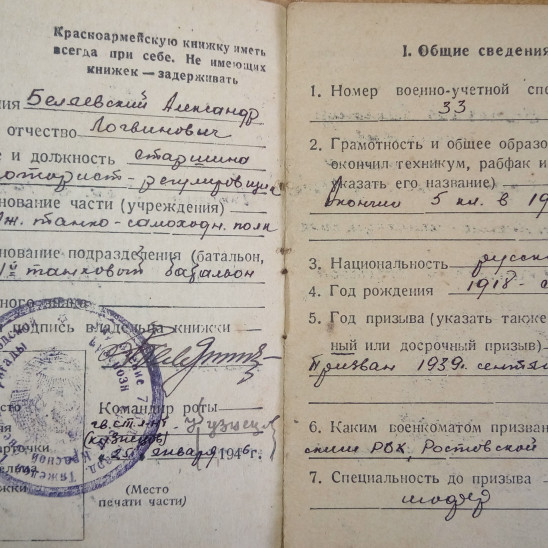 Красноармейскую книжку иметь
всегда при себе. Не имеющих
книжек — задерживать
ия Беляевский Александр
отчество Логвинович
е и должность старшина
регулировщик
нование части (учреждения)
танко-самоходн. полк
нование подразделения (батальон,
танковый батальон
ного знака
подпись владельца книжки
Командир роты
гв. ст. л-нт Кузнецов
(Кузнецов)
января 1946 г.
(Место
печати части)
I. Общие сведения
1. Номер военно-учетной спе
33
2. Грамотность и общее образо
окончил техникум, рабфак и
указать его название)
Окончил 5 кл. в 19
3. Национальность русск
4. Год рождения 1918
5. Год призыва (указать также
ный или досрочный призыв)
Призван 1939 г. сентя
6. Каким военкоматом призван
ским РВК, Ростовской
7. Специальность до призыва